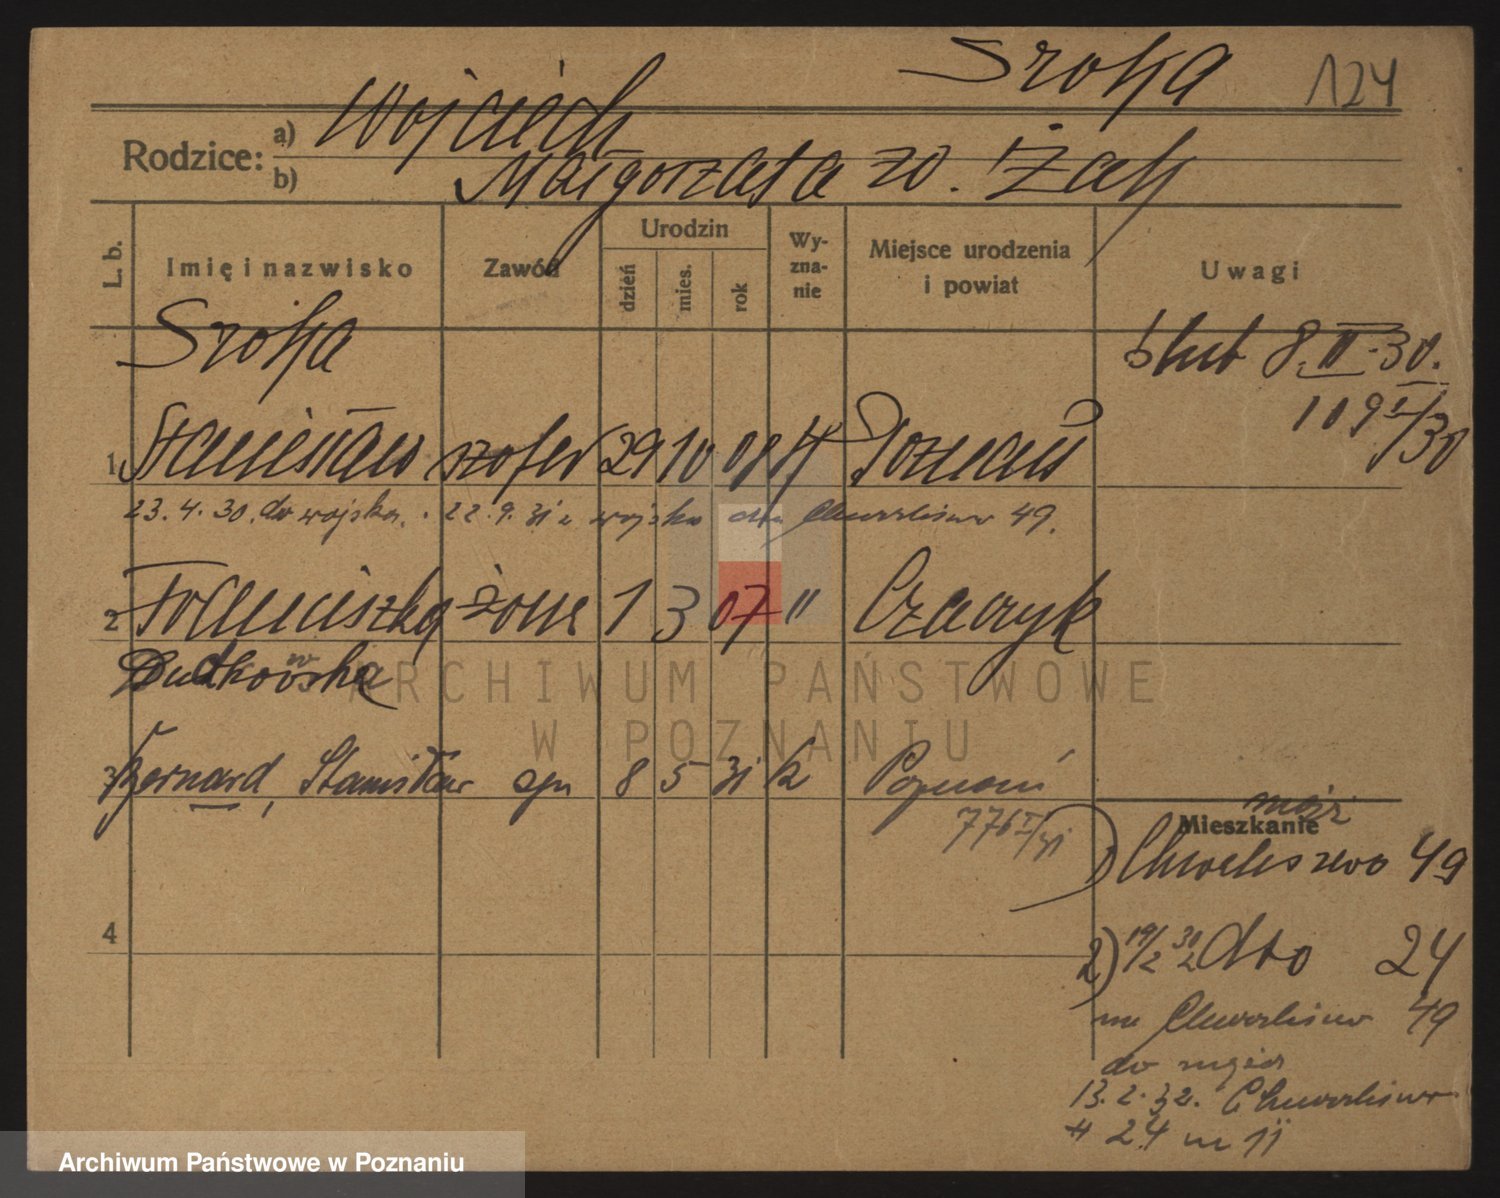 Sroka 124
Rodzice: a) Wojciech
b) Małgorzata zd. Żak
L. b. Imię i nazwisko Zawód Urodzin dzień mies. rok Wyznanie Miejsce urodzenia i powiat Uwagi
Sroka
ślub 8.II.30.
109 I/30
1 Stanisław szofer 29 10 08 k Poznań
23.4.30. do wojska. 22.9.31 z wojska na Chwaliszewo 49.
2 Franciszka żona 1 3 07 " Czacz
Dutkowska
3 Bernard, Stanisław syn 8 5 31 k Poznań
776 I/31
Mieszkanie
1) Chwaliszewo 49
4
2) 19/2 31 dto 24
na Chwaliszewo 49
do męża
13.2.32. Chwaliszewo
# 24 m 11
ARCHIWUM PAŃSTWOWE
W POZNANIU
Archiwum Państwowe w Poznaniu